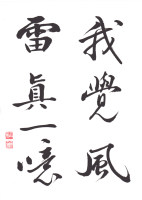 我覺風
雷真一噫